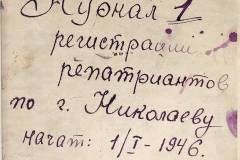 Журнал 1
регистрации
репатриантов
по г. Николаеву
начат: 1/I-1946.